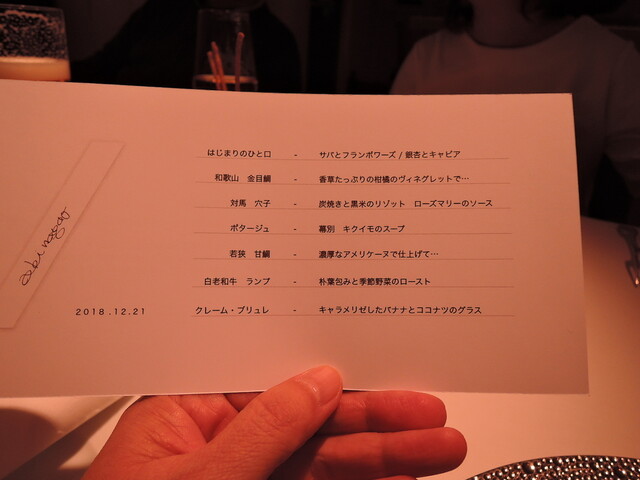 はじまりのひと口 - サバとフランボワーズ / 銀杏とキャビア
和歌山 金目鯛 - 香草たっぷりの柑橘のヴィネグレットで…
対馬 穴子 - 炭焼きと黒米のリゾット ローズマリーのソース
ポタージュ - 幕別 キクイモのスープ
若狭 甘鯛 - 濃厚なアメリケーヌで仕上げて…
白老和牛 ランプ - 朴葉包みと季節野菜のロースト
2018.12.21 クレーム・ブリュレ - キャラメリゼしたバナナとココナツのグラス